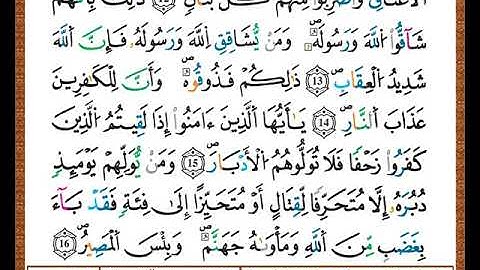 الْأَعْنَاقِ وَاضْرِبُوا۟ مِنْهُمْ كُلَّ بَنَانٍ ۝١٢ ذَٰلِكَ بِأَنَّهُمْ
شَآقُّوا۟ ٱللَّهَ وَرَسُولَهُۥ ۚ وَمَن يُشَاقِقِ ٱللَّهَ وَرَسُولَهُۥ فَإِنَّ ٱللَّهَ
شَدِيدُ ٱلْعِقَابِ ۝13 ذَٰلِكُمْ فَذُوقُوهُ وَأَنَّ لِلْكَٰفِرِينَ
عَذَابَ ٱلنَّارِ ۝14 يَٰٓأَيُّهَا ٱلَّذِينَ ءَامَنُوٓا۟ إِذَا لَقِيتُمُ ٱلَّذِينَ
كَفَرُوا۟ زَحْفًا فَلَا تُوَلُّوهُمُ ٱلْأَدْبَارَ ۝15 وَمَن يُوَلِّهِمْ يَوْمَئِذٍ
دُبُرَهُۥٓ إِلَّا مُتَحَرِّفًا لِّقِتَالٍ أَوْ مُتَحَيِّزًا إِلَىٰ فِئَةٍ فَقَدْ بَآءَ
بِغَضَبٍ مِّنَ ٱللَّهِ وَمَأْوَىٰهُ جَهَنَّمُ ۖ وَبِئْسَ ٱلْمَصِيرُ ۝16